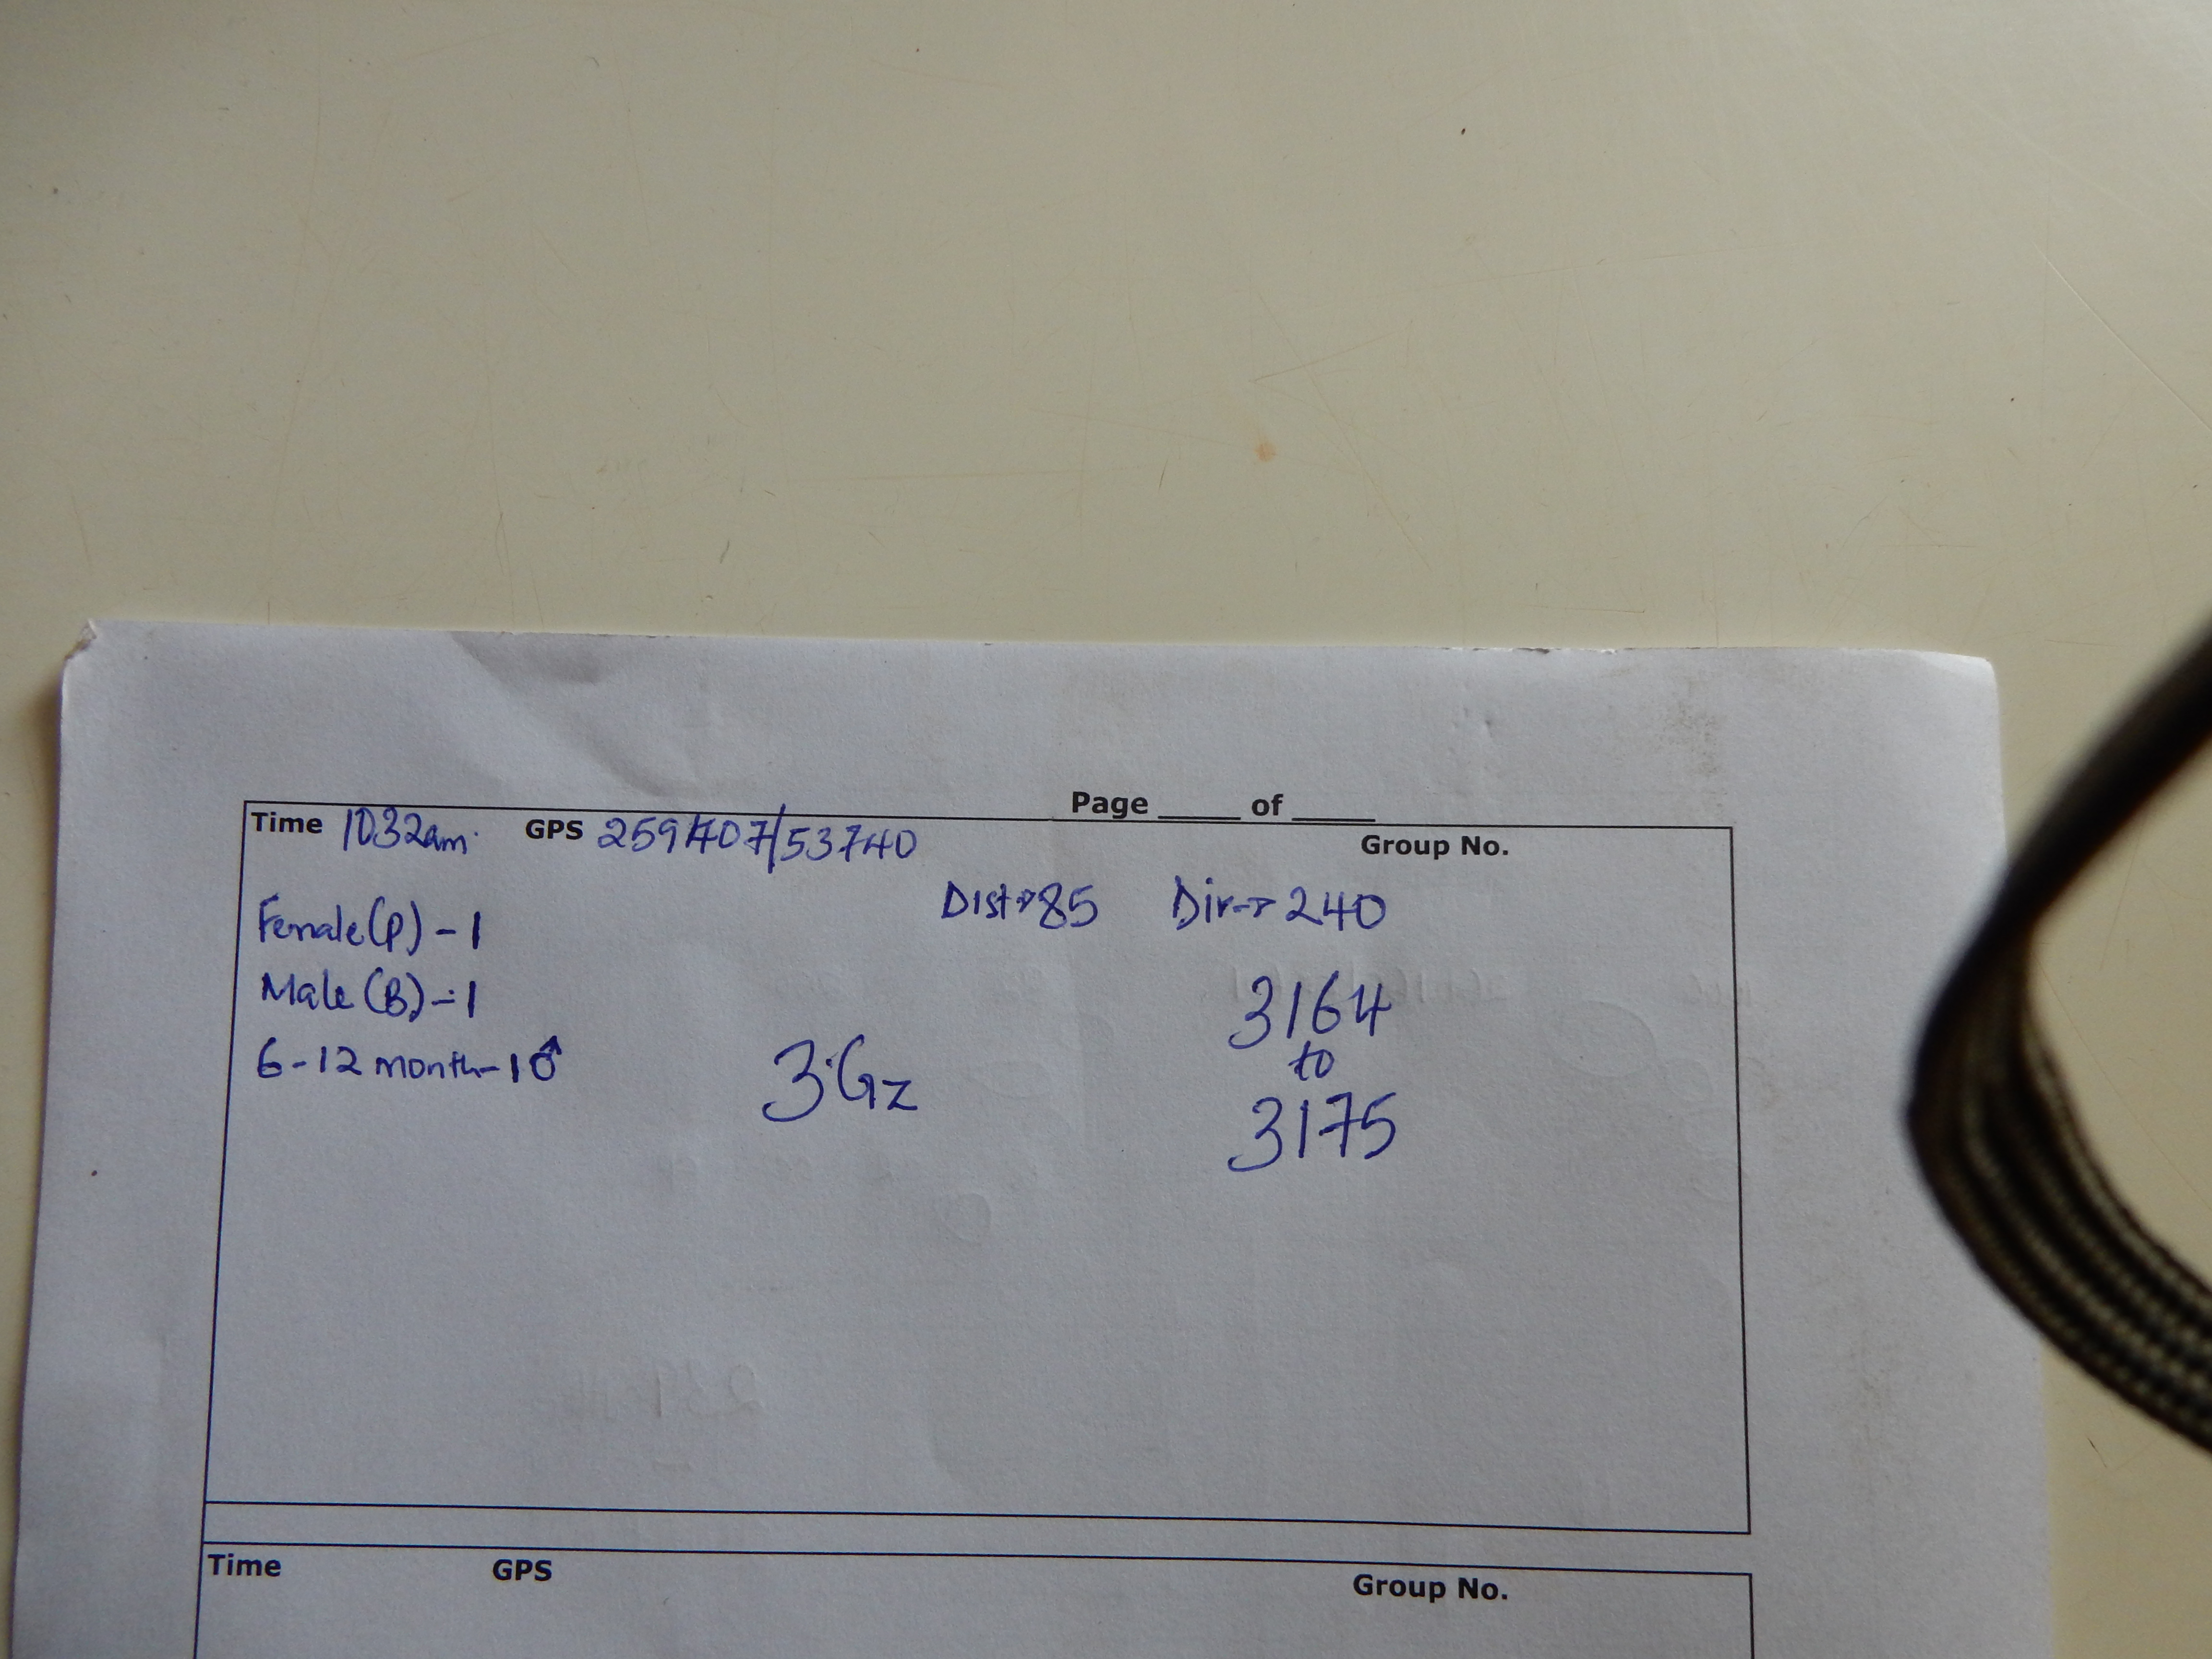 Page _____ of _____
Time 10.32am. GPS 259407/53740 Group No.
Dist→85 Dir→240
Female(P) - 1
Male (B) - 1
6-12 month - 1♂
3.Gz
3164
to
3175
Time GPS Group No.